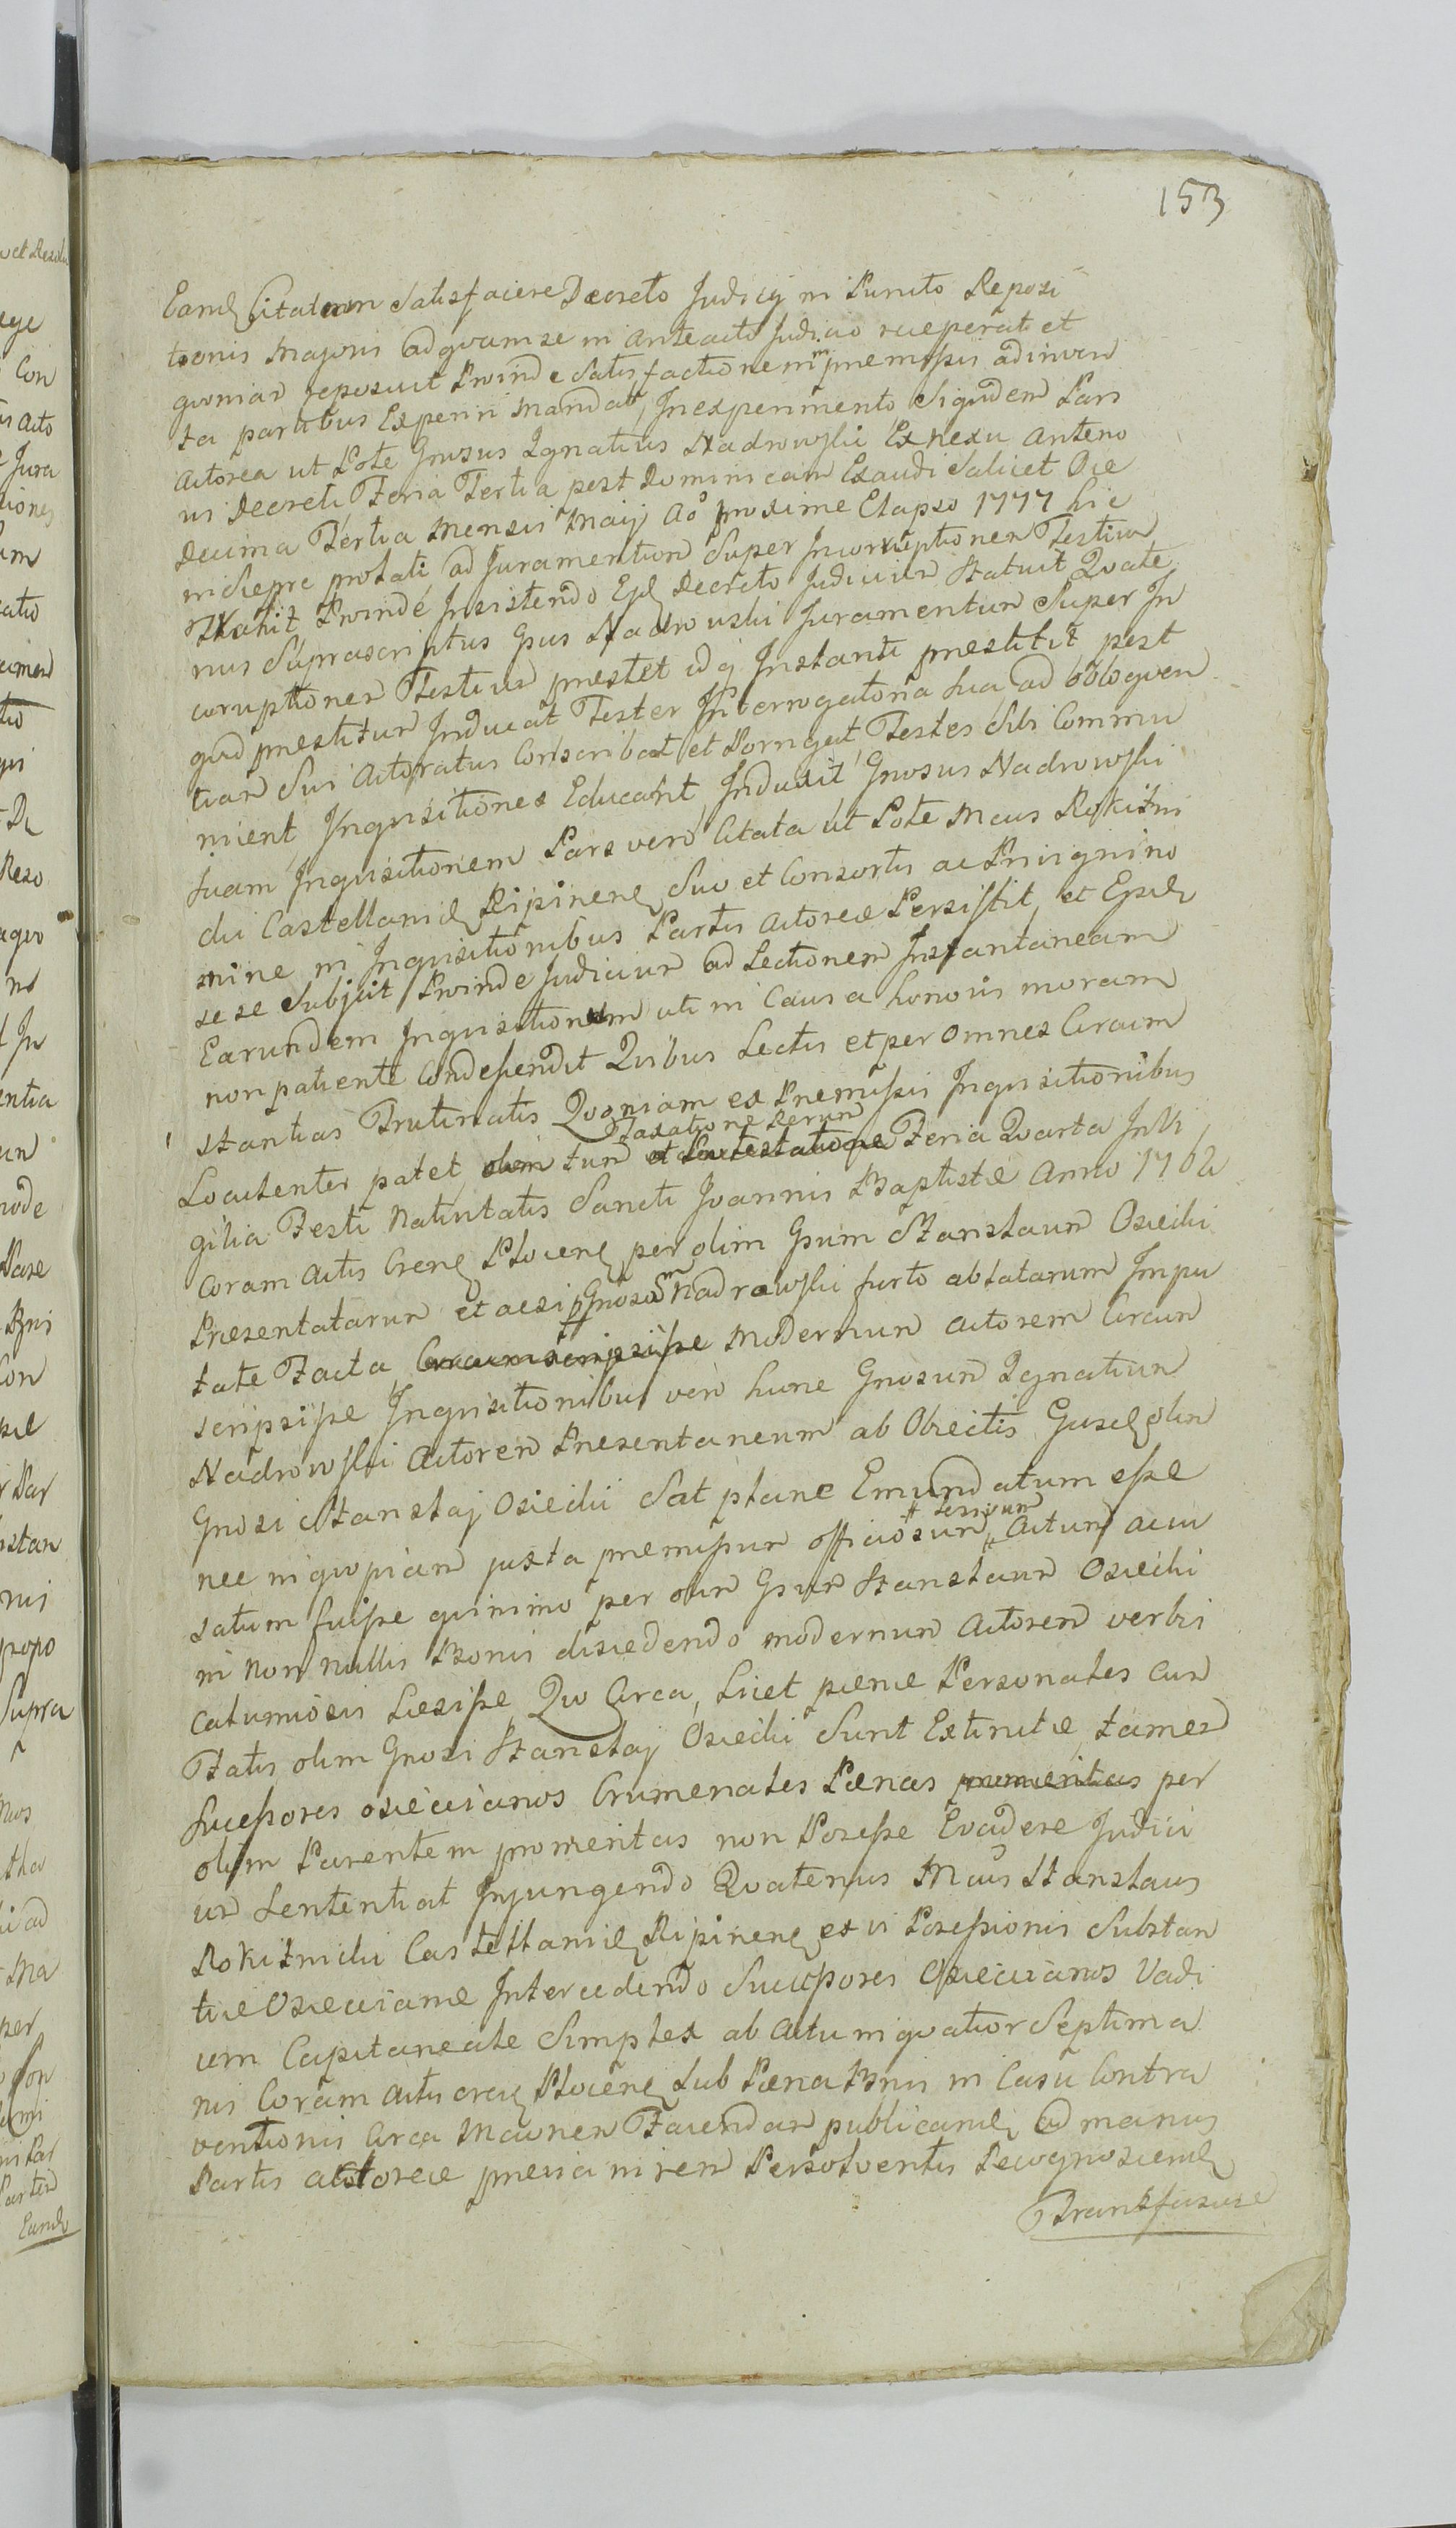 153
Eamdę Citatam Satisfacere Decreto Judicij in Puncto Reposi
tionis Majoris ad quam se in Anteacto Judicio receperat et
quoniam reposuit Proinde Satisfactionem premissis adinven
ta partibus Experiri mandat, In experimento Siquidem Pars
Actorea ut Pote Gnosus Ignatius Nadrowski Ex nexu Anterio
ris Decreti Feria Tertia post Dominicam Exaudi Salicet Die
Decima Tertia Mensis Maij Ao proxime Elapso 1777 hic
in Sierpc prolati ad Juramentum Super Incorruptionem Testium
Trahit Proinde Insistendo Ejdę Decreto Judicium Statuit Quate
nus Suprascriptus Gsus Nadrowski Juramentum Super In
coruptionem Testium prestet idq Instanti prestitit post
quod prestitum Inducat Testes Interrogatoria sua ad obloquen
tiam Sui Actoratus Conscribat et Porrigat Testes Sibi Commu
nient Inquisitiones Educant, Induxit Gnosus Nadrowski
suam Inquisitionem Pars vero Citata ut Pote Mcus Rokitni
cki Castellanidę Ripinenę Suo et Consortis ac Privignino
mine in Inquisitionibus Partis Actoreæ Persistit, et Ejsdę
se se Subjcit Proinde Judicium ad Lectionem Instantaneam
Earundem Inquisitionem uti in Causa honoris moram
non patienti Condescendit Quibus Lectis et per omnes Circum
stantias Trutinatis Quoniam ex Premissis Inquisitionibus
Luculenter patet, olim tum Taxatione rerum Feria Quarta In Vi
gilia Festi Nativitatis Sancti Joannis Baptistæ Anno 1762
Coram Actis Crenę Plocenę per olim Gsum Stanslaum Osiecki
Presentatarum et acsi p Gnosum Nadrowski furto ablatarum Impu
tate Facta, Circumscripsisse Modernum Actorem Circum
scripsisse Inquisitionibus vero hunc Gnosum Ignatium
Nadrowski Actorem Presentaneum ab Obiectis Gusdę olim
Gnosi Stanslaj Osiecki Sat plane Emundatum esse
nec in quopiam juxta premissum officiosum # Actum accu
satum fuisse quinimo per olim Gsum Stanslaum Osiecki
in Non nullis Bonis discedendo modernum Actorem verbis
calumiosis Læsisse, Quo Circa, Licet pænæ Personales cum
Fatis olim Gnosi Stanslaj Osiecki Sunt Extinctæ, tamen
Sucessores Osieccianos Crumenales Pænas promeritas per
olim Parentem promeritas non Posesse Evadere Judici
um Sententiat Injungendo Quatenus Mcus Stanslaus
Rokitnicki Castellanidę Ripinenę ex vi Posessionis Substan
tiæ Osieccianæ Intercedendo Sucessores Osieccianos Vadi
um Capitaneale Simplex ab Actu in quatuor Septima
nis Coram Actis Crenę Plocenę sub Pæna Bnis in Casu Contra
ventionis Circa Mcunem Faciendam publicandę ad manus
Partis Actoreæ previa in rem Persolventis Recognoscendę
Transfusione